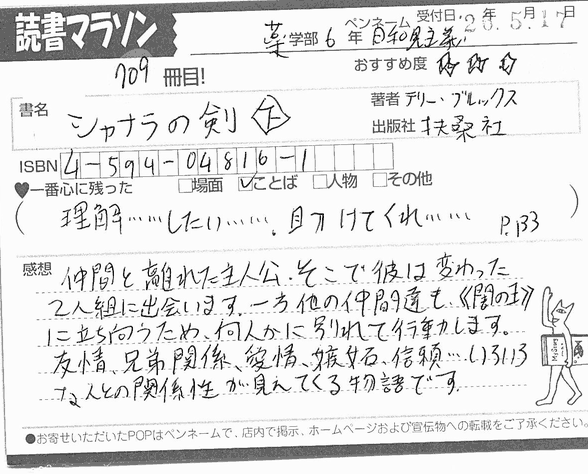 読書マラソン
薬学部 6年 ペンネーム 日和見主義 受付日 20年5月17日
709冊目!
おすすめ度 ☆☆☆
書名 シャナラの剣 下
著者 テリー・ブルックス
出版社 扶桑社
ISBN 4-594-04816-1
♥一番心に残った □場面 ☑ことば □人物 □その他
(理解……したい……。助けてくれ…… P.133)
感想 仲間と離れた主人公。そこで彼は変わった
2人組に出会います。一方他の仲間達も、《闇の王》
に立ち向うため、何人かに別れて行動します。
友情、兄弟関係、愛情、嫉妬、信頼…いろいろ
な人との関係性が見えてくる物語です。
●お寄せいただいたPOPはペンネームで、店内で掲示、ホームページおよび宣伝物への転載をご了承ください。